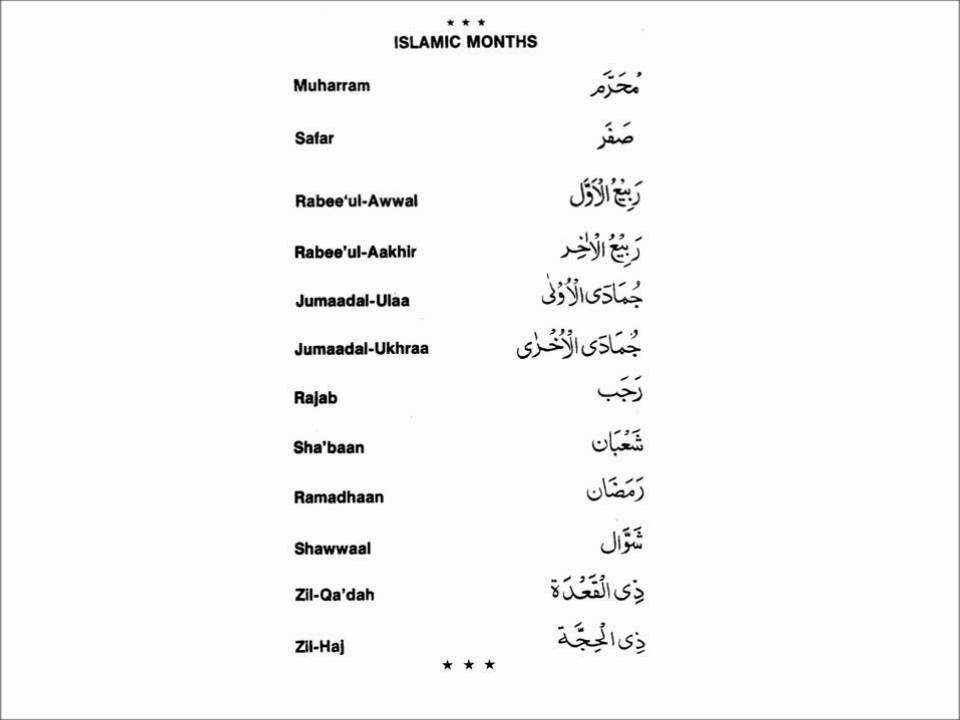 ★ ★ ★
ISLAMIC MONTHS
Muharram مُحَرَّم
Safar صَفَر
Rabee‘ul-Awwal رَبِيْعُ الْاَوَّل
Rabee’ul-Aakhir رَبِيْعُ الْاٰخِر
Jumaadal-Ulaa جُمَادَى الْاُوْلٰى
Jumaadal-Ukhraa جُمَادَى الْاُخْرٰى
Rajab رَجَب
Sha’baan شَعْبَان
Ramadhaan رَمَضَان
Shawwaal شَوَّال
Zil-Qa’dah ذِى الْقَعْدَة
Zil-Haj ذِى الْحِجَّة
★ ★ ★